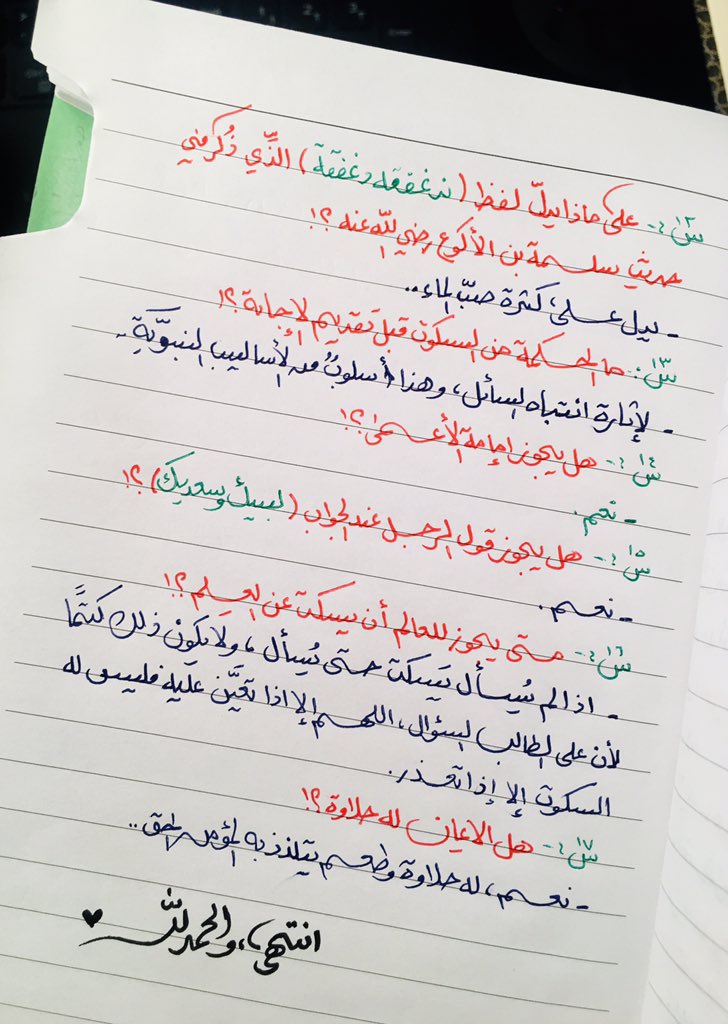 س١٢:- على ماذا يدلّ لفظ (ندغفقه دغفقة) الذّي ذُكر في
حديث سلمة بن الأكوع رضي الله عنه؟!
- يدل على كثرة صبّ الماء..
س١٣:- ما الحكمة من السكوت قبل تقديم الإجابة؟!
- لإثارة انتباه السائل، وهذا أسلوبٌ من الأساليب النبويَّةِ.
س١٤:- هل يجوز إمامة الأعمى؟!
- نعم.
س١٥:- هل يجوز قول الرجل عند الجواب (لبيك وسعديك)؟!
- نعم.
س١٦:- متى يجوز للعالم أن يسكت عن العِلم؟!
- اذا لم يُسأل يَسكت حتى يُسأل، ولا يكونُ ذلك كتمًا
لأن على الطالب السؤال، اللهم إلا اذا تعيَّن عليه فليس له
السكوت إلا إذا تعذر.
س١٧:- هل الايمان له حلاوة؟!
- نعم، له حلاوة وطعم يتلذذ به المؤمن الحق..
انتهى، والحمدلله